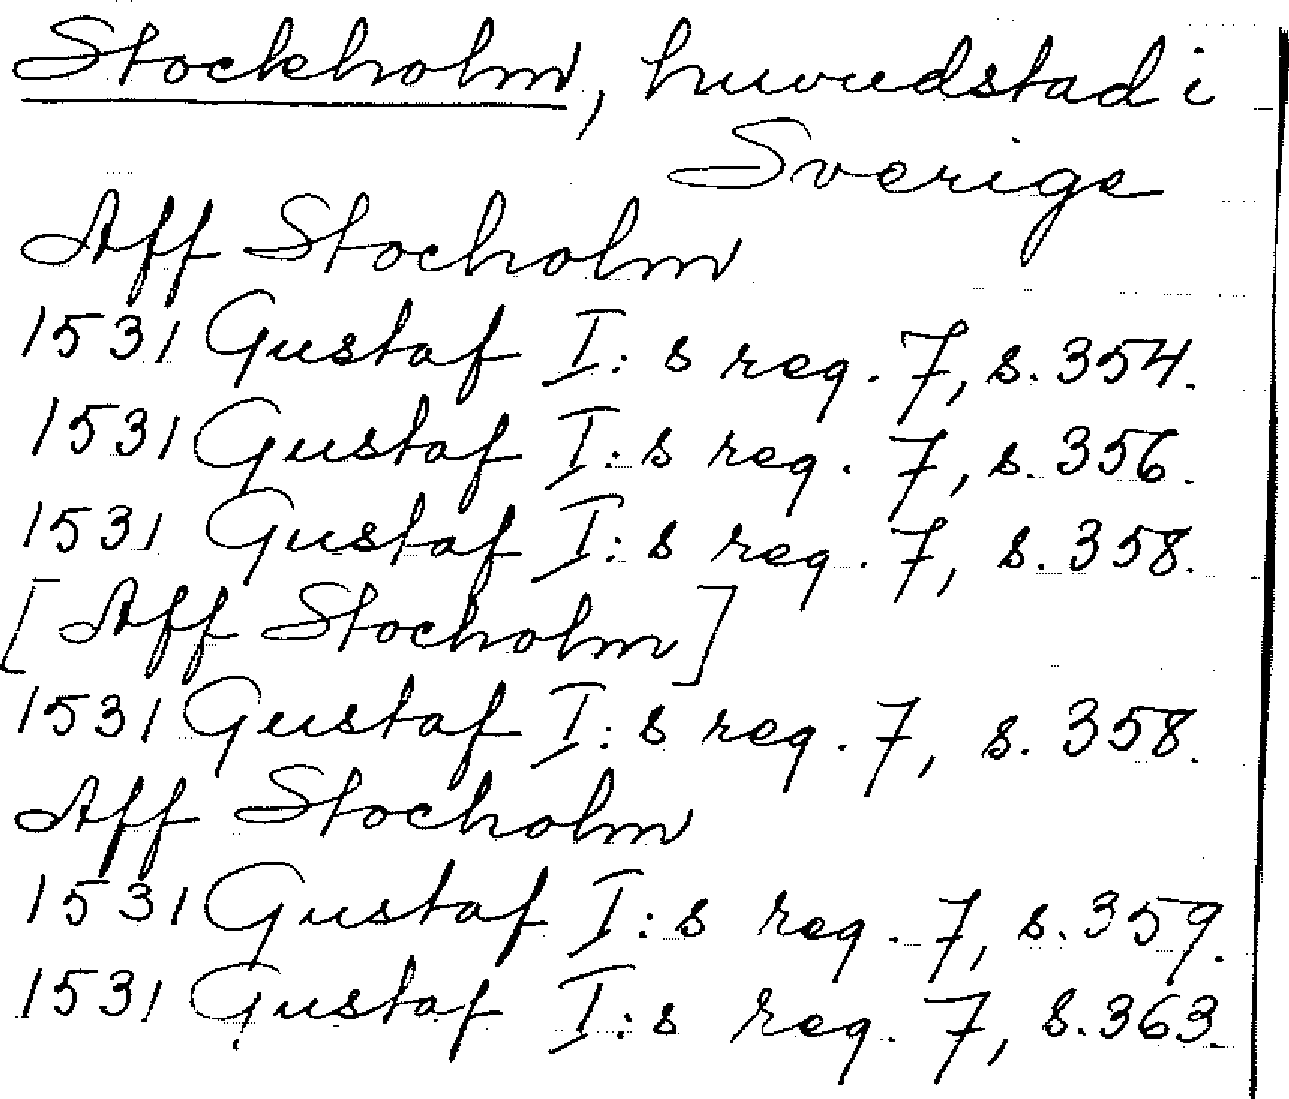 Stockholm, huvudstad i
Sverige
Aff Stocholm
1531 Gustaf I:s reg. 7, s. 354.
1531 Gustaf I:s reg. 7, s. 356.
1531 Gustaf I:s reg. 7, s. 358.
[Aff Stocholm]
1531 Gustaf I:s reg. 7, s. 358.
Aff Stocholm
1531 Gustaf I:s reg. 7, s. 359.
1531 Gustaf I:s reg. 7, s. 363.